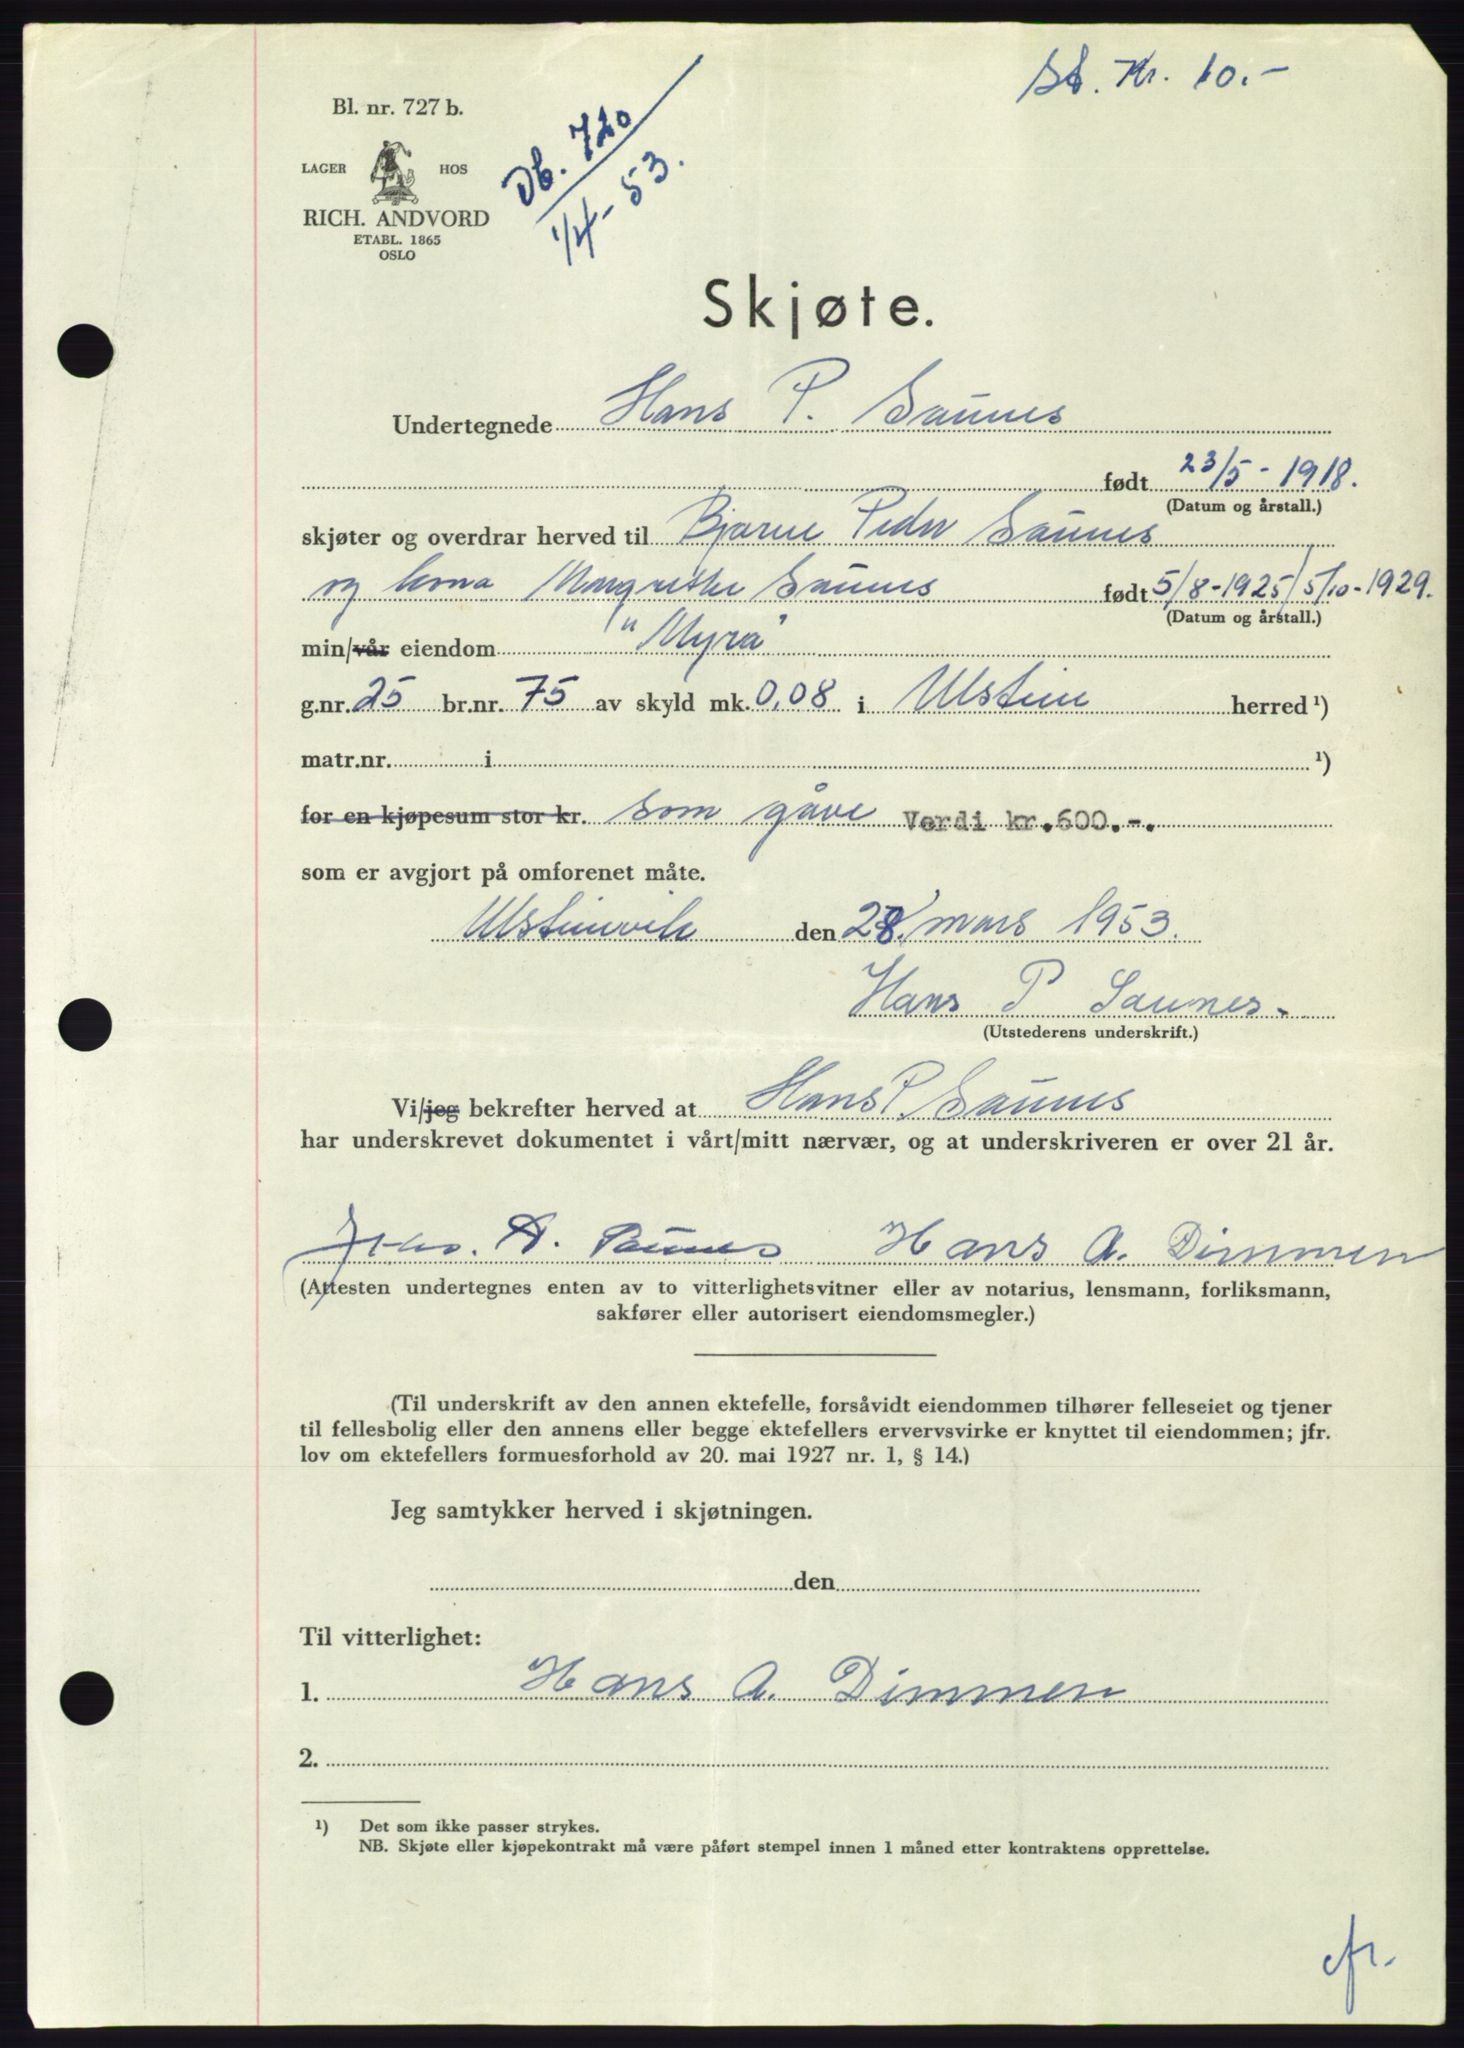 St. Kr. 10.-
Bl. nr. 727 b.
Db. 720
1/4 - 53.
LAGER HOS
RICH. ANDVORD
ETABL. 1865
OSLO
Skjøte.
Undertegnede Hans P. Saunes
født 23/5 - 1918.
(Datum og årstall.)
skjøter og overdrar herved til Bjarne Peder Saunes
og kona Margrethe Saunes født 5/8-1925/5/10-1929.
(Datum og årstall.)
min/vår eiendom "Myra"
g.nr. 25 br.nr. 75 av skyld mk. 0,08 i Ulstein herred ¹)
matr.nr. i ¹)
for en kjøpesum stor kr. som gåve Verdi kr.600.-.
som er avgjort på omforenet måte.
Ulsteinvik den 28. mars 1953.
Hans P Saunes.
(Utstederens underskrift.)
Vi/jeg bekrefter herved at Hans P. Saunes
har underskrevet dokumentet i vårt/mitt nærvær, og at underskriveren er over 21 år.
A. Saunes Hans A. Dimmen
(Attesten undertegnes enten av to vitterlighetsvitner eller av notarius, lensmann, forliksmann,
sakfører eller autorisert eiendomsmegler.)
(Til underskrift av den annen ektefelle, forsåvidt eiendommen tilhører felleseiet og tjener
til fellesbolig eller den annens eller begge ektefellers ervervsvirke er knyttet til eiendommen; jfr.
lov om ektefellers formuesforhold av 20. mai 1927 nr. 1, § 14.)
Jeg samtykker herved i skjøtningen.
den
Til vitterlighet:
1. Hans A. Dimmen
2.
¹) Det som ikke passer strykes.
NB. Skjøte eller kjøpekontrakt må være påført stempel innen 1 måned etter kontraktens opprettelse.